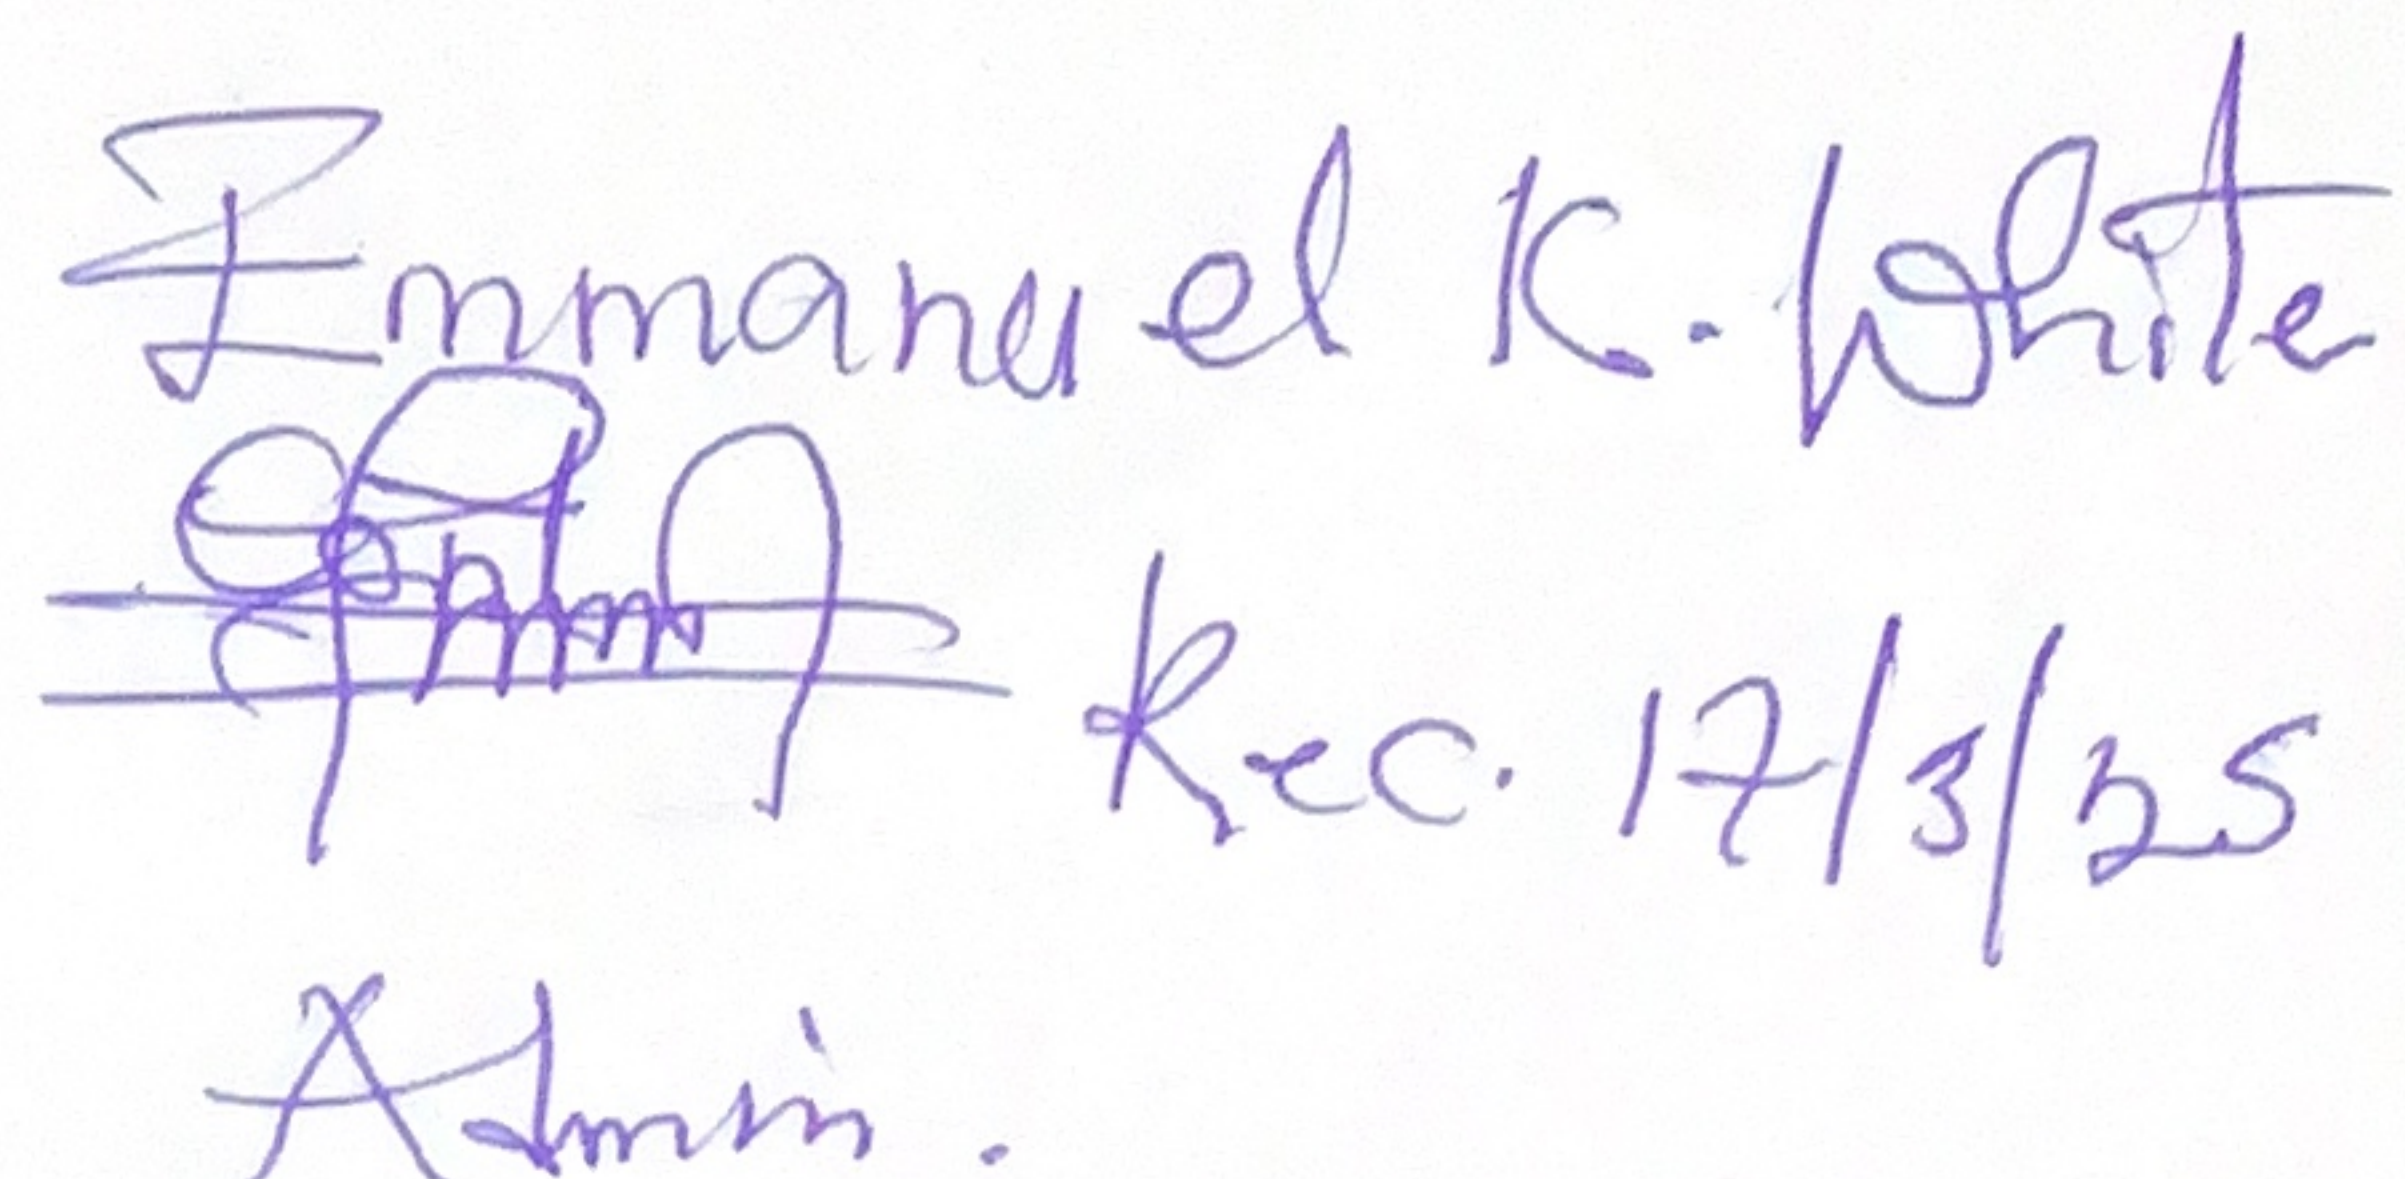 Emmanuel K. White
Rec. 17/3/25
Admin.